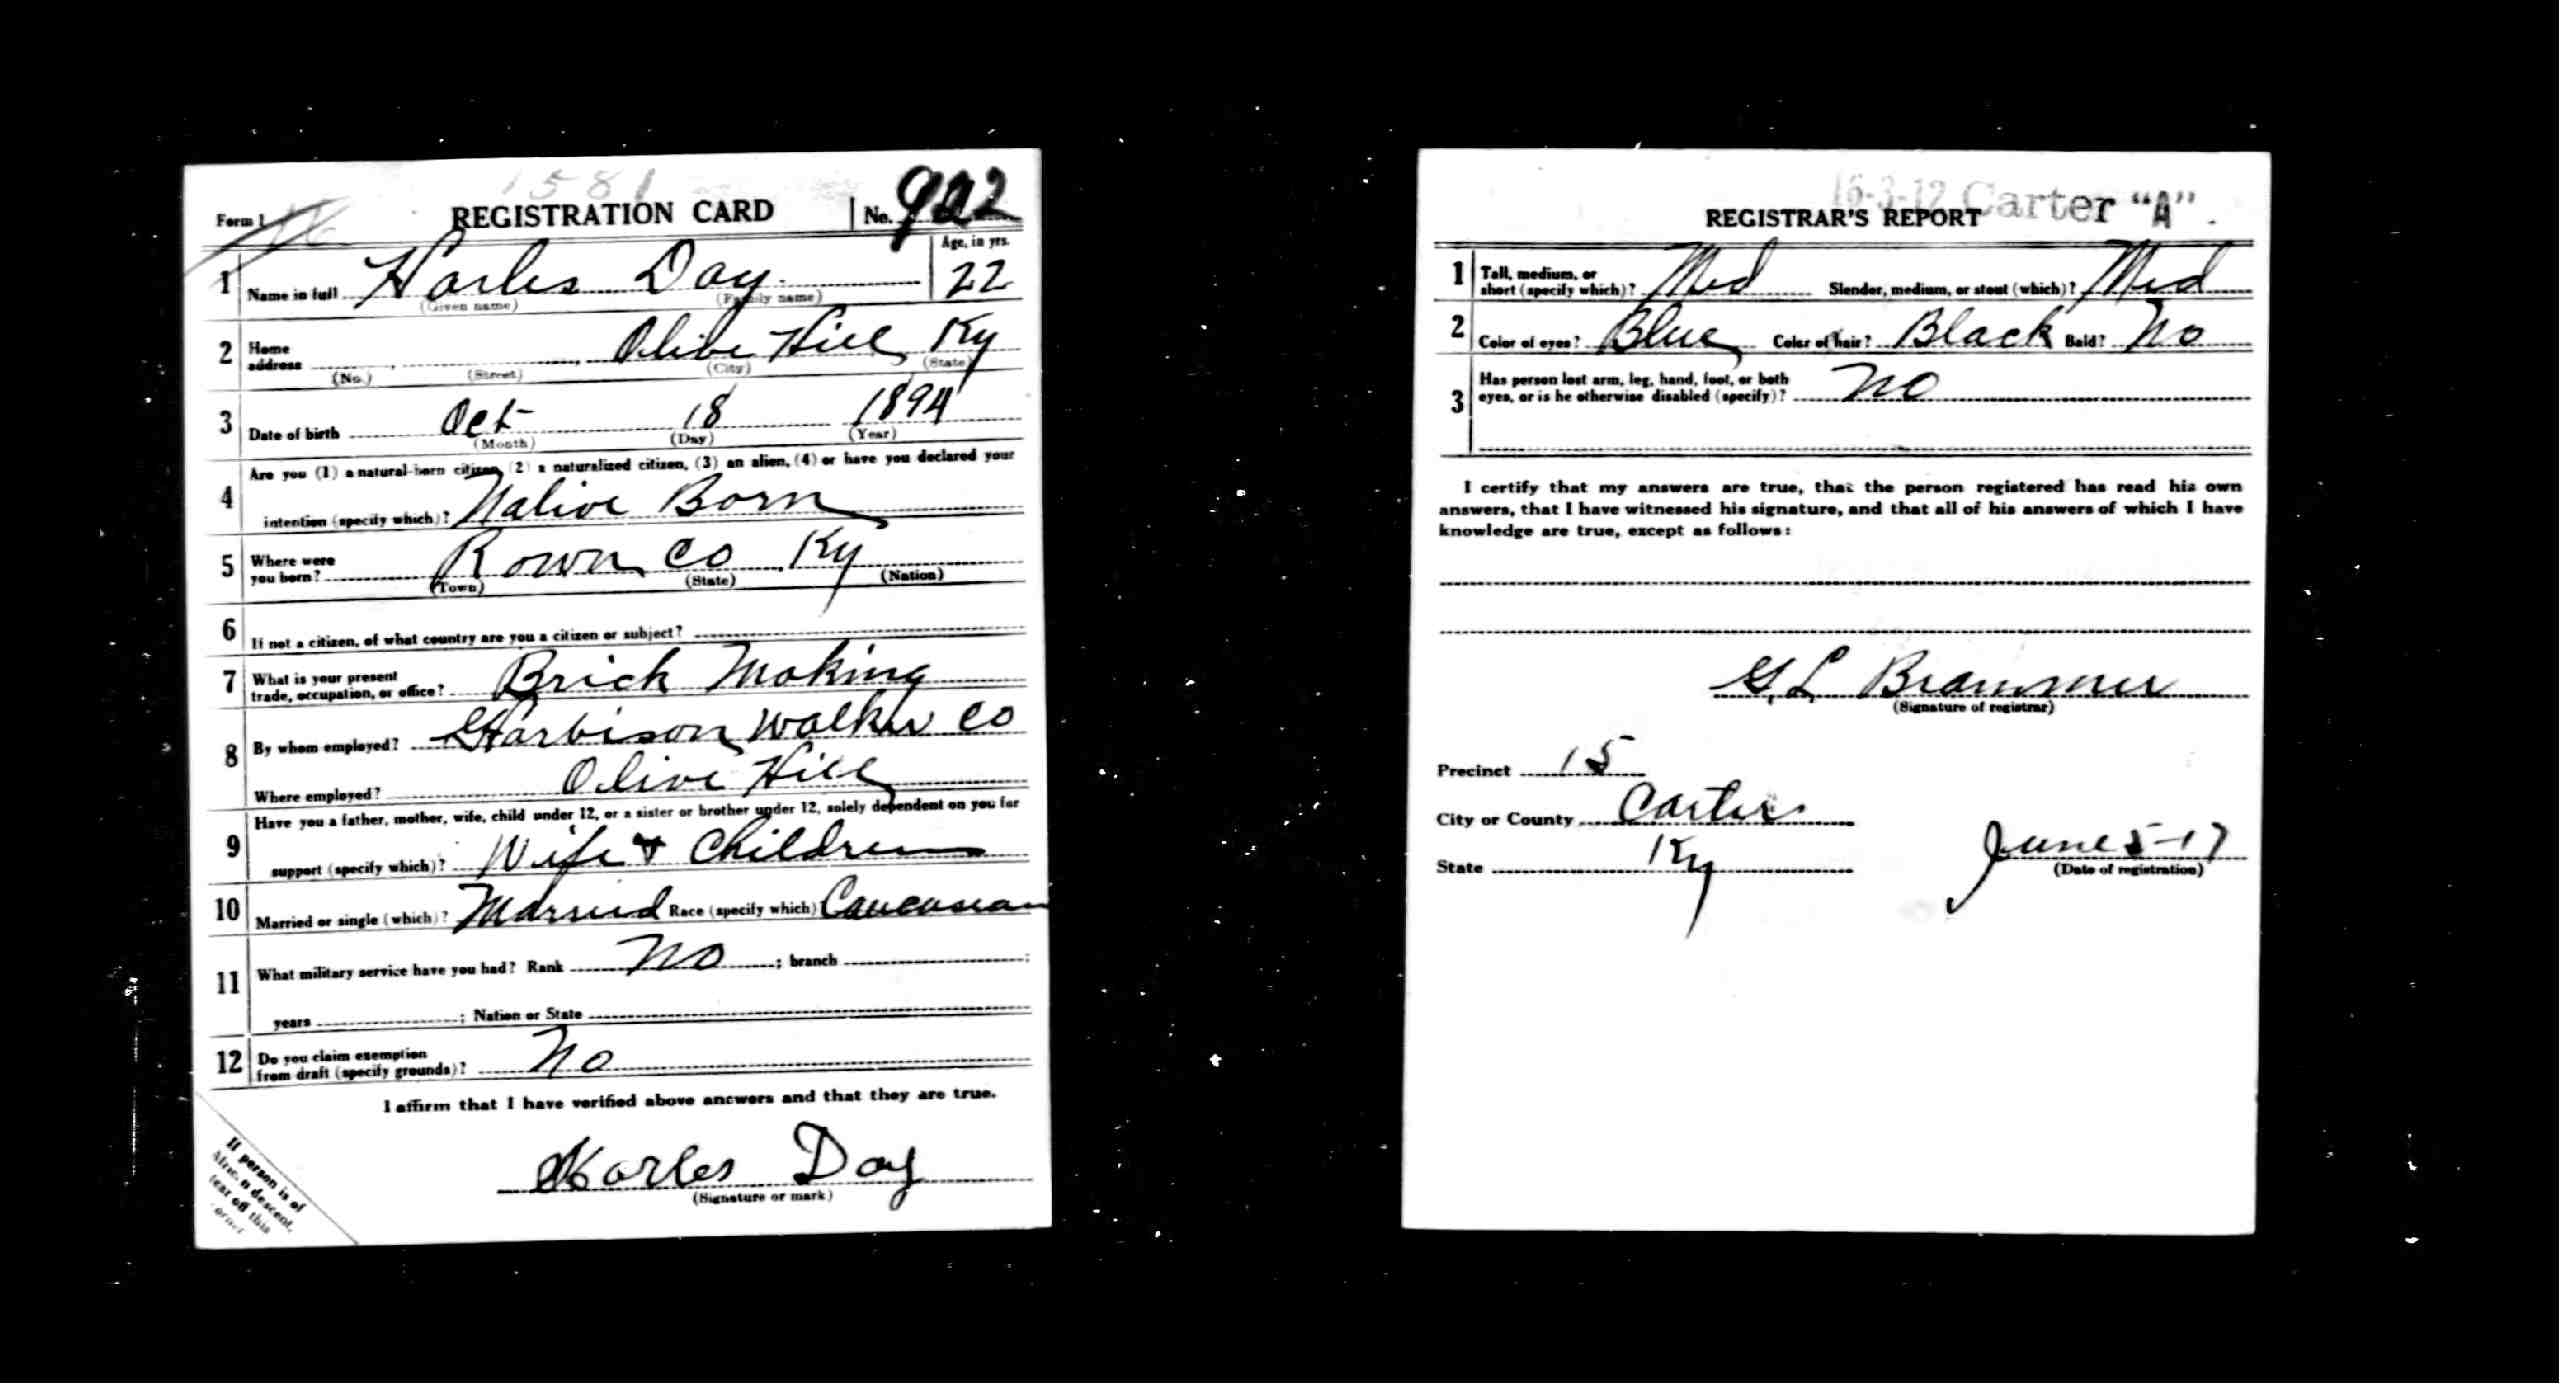 1581
Form 1 REGISTRATION CARD No. 922
1 Name in full Harles Day Age, in yrs. 22
(Given name) (Family name)
2 Home address Olive Hill Ky
(No.) (Street) (City) (State)
3 Date of birth Oct 18 1894
(Month) (Day) (Year)
4 Are you (1) a natural-born citizen, (2) a naturalized citizen, (3) an alien, (4) or have you declared your
intention (specify which)? Native Born
5 Where were you born? Rown Co Ky
(Town) (State) (Nation)
6 If not a citizen, of what country are you a citizen or subject?
7 What is your present trade, occupation, or office? Brick Making
8 By whom employed? Harbison Walker Co
Where employed? Olive Hill
9 Have you a father, mother, wife, child under 12, or a sister or brother under 12, solely dependent on you for
support (specify which)? Wife & Children
10 Married or single (which)? Married Race (specify which) Caucasian
11 What military service have you had? Rank No ; branch ;
years ; Nation or State
12 Do you claim exemption from draft (specify grounds)? No
I affirm that I have verified above answers and that they are true.
Harles Day
(Signature or mark)
If person is of
African descent,
tear off this
corner
16-3-12 Carter "A".
REGISTRAR'S REPORT
1 Tall, medium, or short (specify which)? Med Slender, medium, or stout (which)? Med
2 Color of eyes? Blue Color of hair? Black Bald? No
3 Has person lost arm, leg, hand, foot, or both
eyes, or is he otherwise disabled (specify)? No
I certify that my answers are true, that the person registered has read his own
answers, that I have witnessed his signature, and that all of his answers of which I have
knowledge are true, except as follows:
G. L. Brammer
(Signature of registrar)
Precinct 15
City or County Carter
State Ky
June 5-17
(Date of registration)